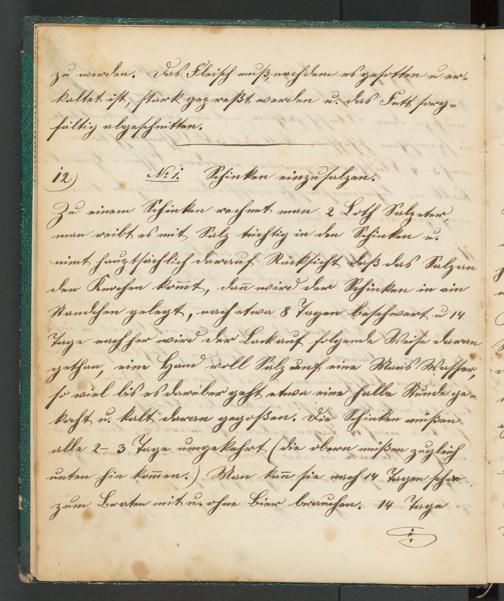 zu werden. Das Fleisch muß nachdem es gesotten u er-
kaltet ist, stark gepreßt werden u. das Fett sorg-
fältig abgeschnitten.
12) No 1. Schinken einzusalzen.
Zu einem Schinken rechnet man 2 Loth Salpeter
man reibt es mit Salz tüchtig in den Schinken u.
nimt hauptsächlich darauf Rücksicht daß das Salz an
den Knochen kom̄t, dan̄ wird der Schinken in ein
Standchen gelegt, nach etwa 8 Tagen beschwert u 14
Tage nachher wird der Lack auf folgende Weise daran
gethan, eine Hand voll Salz auf eine Maas Wasser,
so viel bis es darüber geht etwa eine halbe Stunde ge-
kocht u. kalt daran gegoßen. Die Schinken müßen
alle 2-3 Tage umgekehrt (die obern müßen zugleich
unten hin kom̄en.) Man kan̄ sie nach 14 Tagen schon
zum Braten mit u. ohne Bier brauchen. 14 Tage